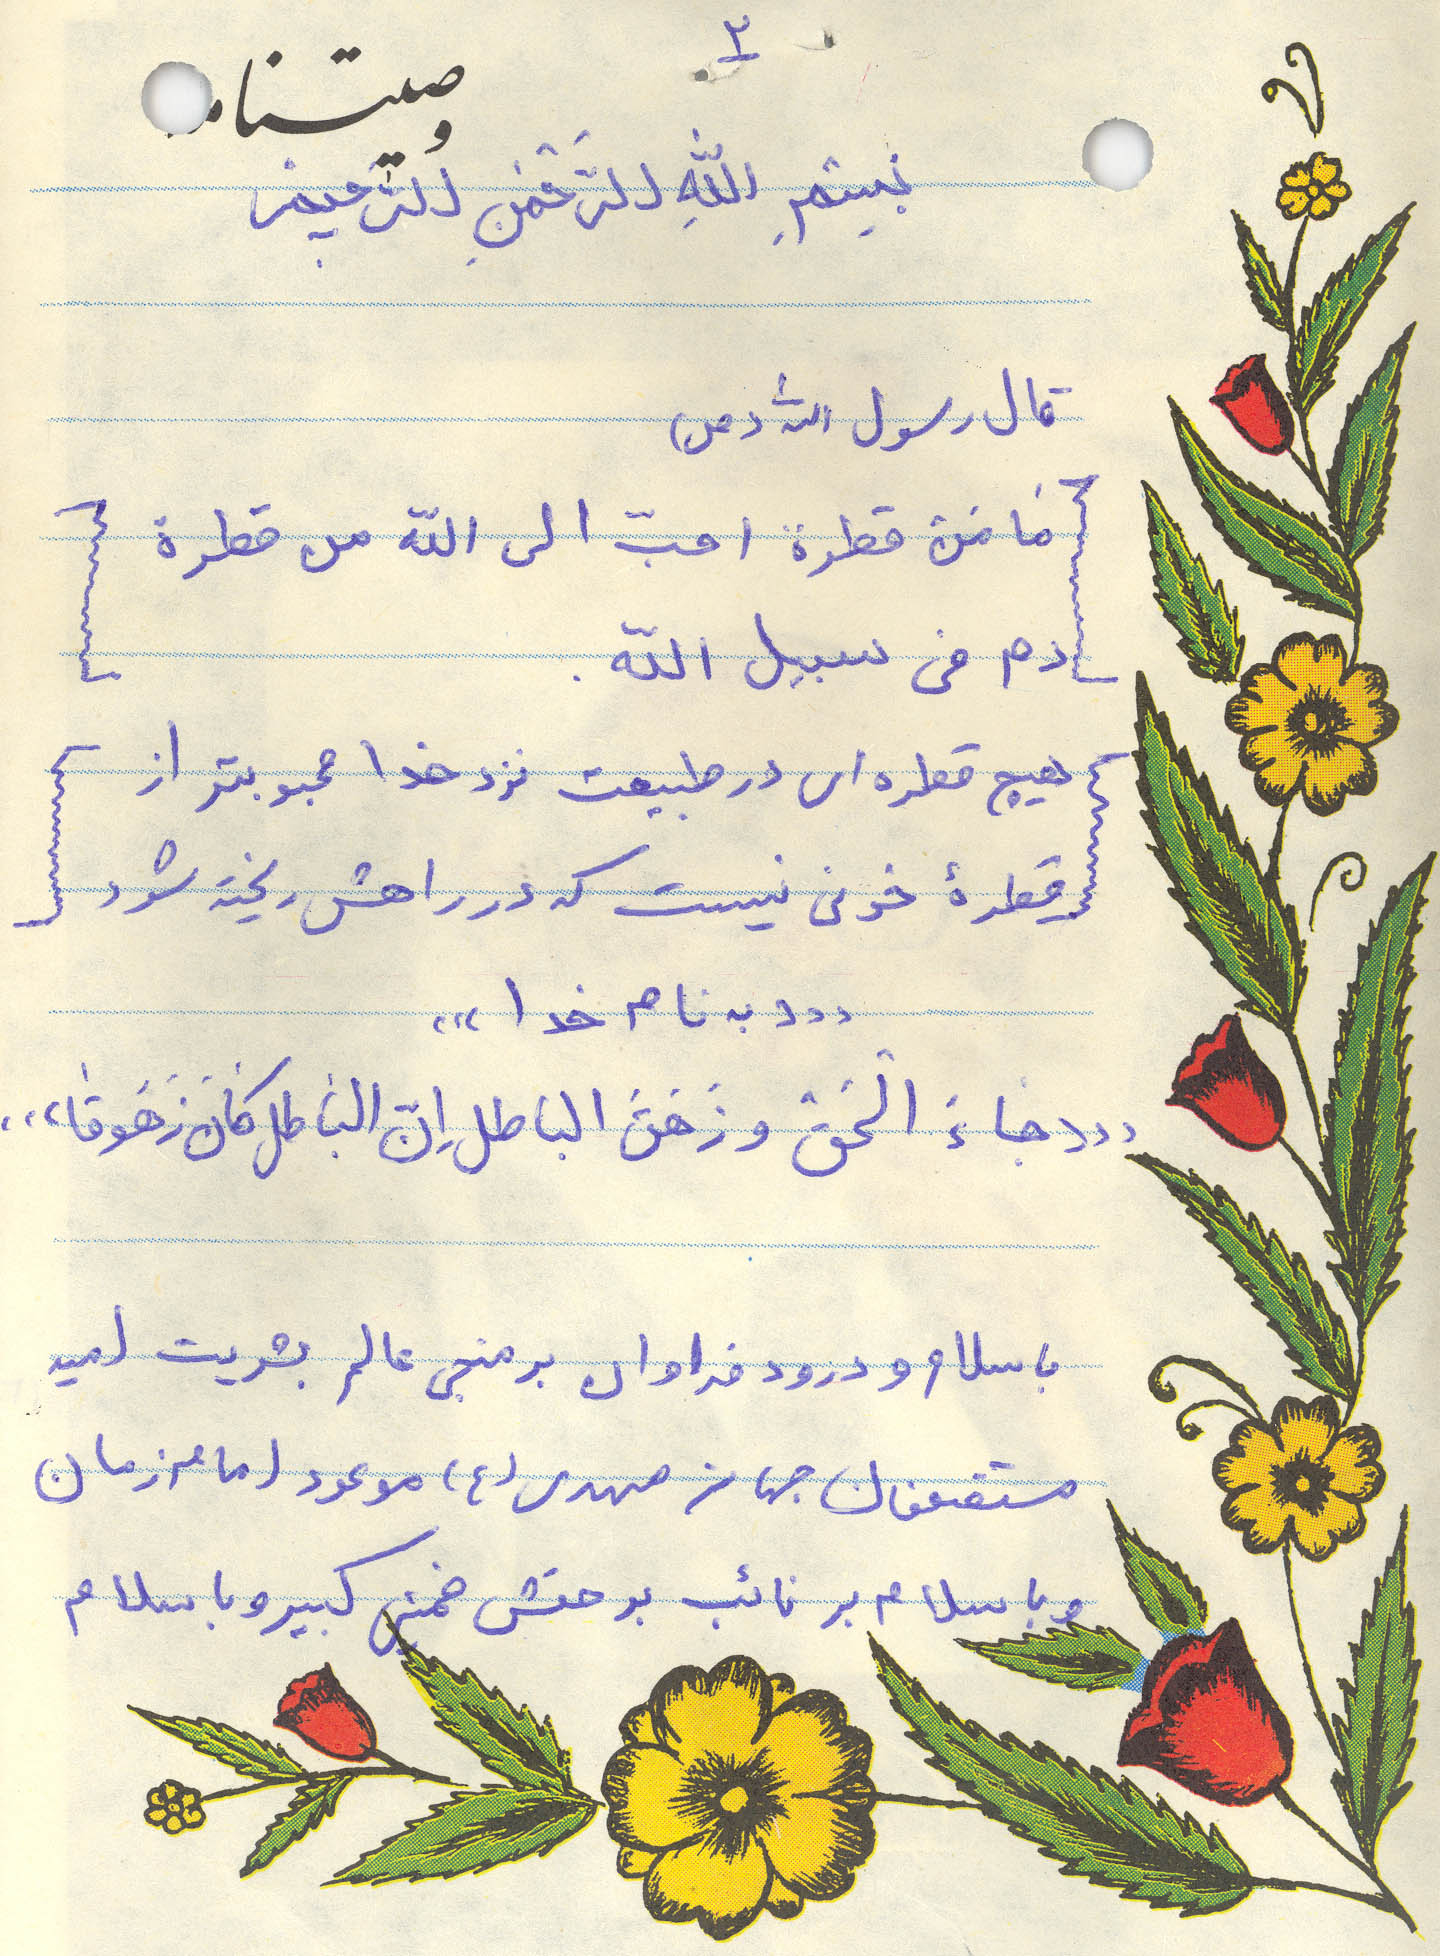 ۲
وصیتنامه
بِسْمِ اللهِ الرَّحْمنِ الرَّحیمِ
قال رسول الله (ص)
ما مِنْ قطرة احبّ الی اللّه من قطرة
دم فی سبیل اللّه .
هیچ قطره ای در طبیعت نزد خدا محبوبتر از
قطرهٔ خونی نیست که در راهش ریخته شود
«به نام خدا»
«جاءَ الْحَق وَ زَهَقَ الباطل اِنَّ الباطل کانَ زَهَوقا»
با سلام و درود فراوان بر منجی عالم بشریت امید
مستضعفان جهان مهدی (ع) موعود امام زمان
و با سلام بر نائب بر حقش خمینی کبیر و با سلام